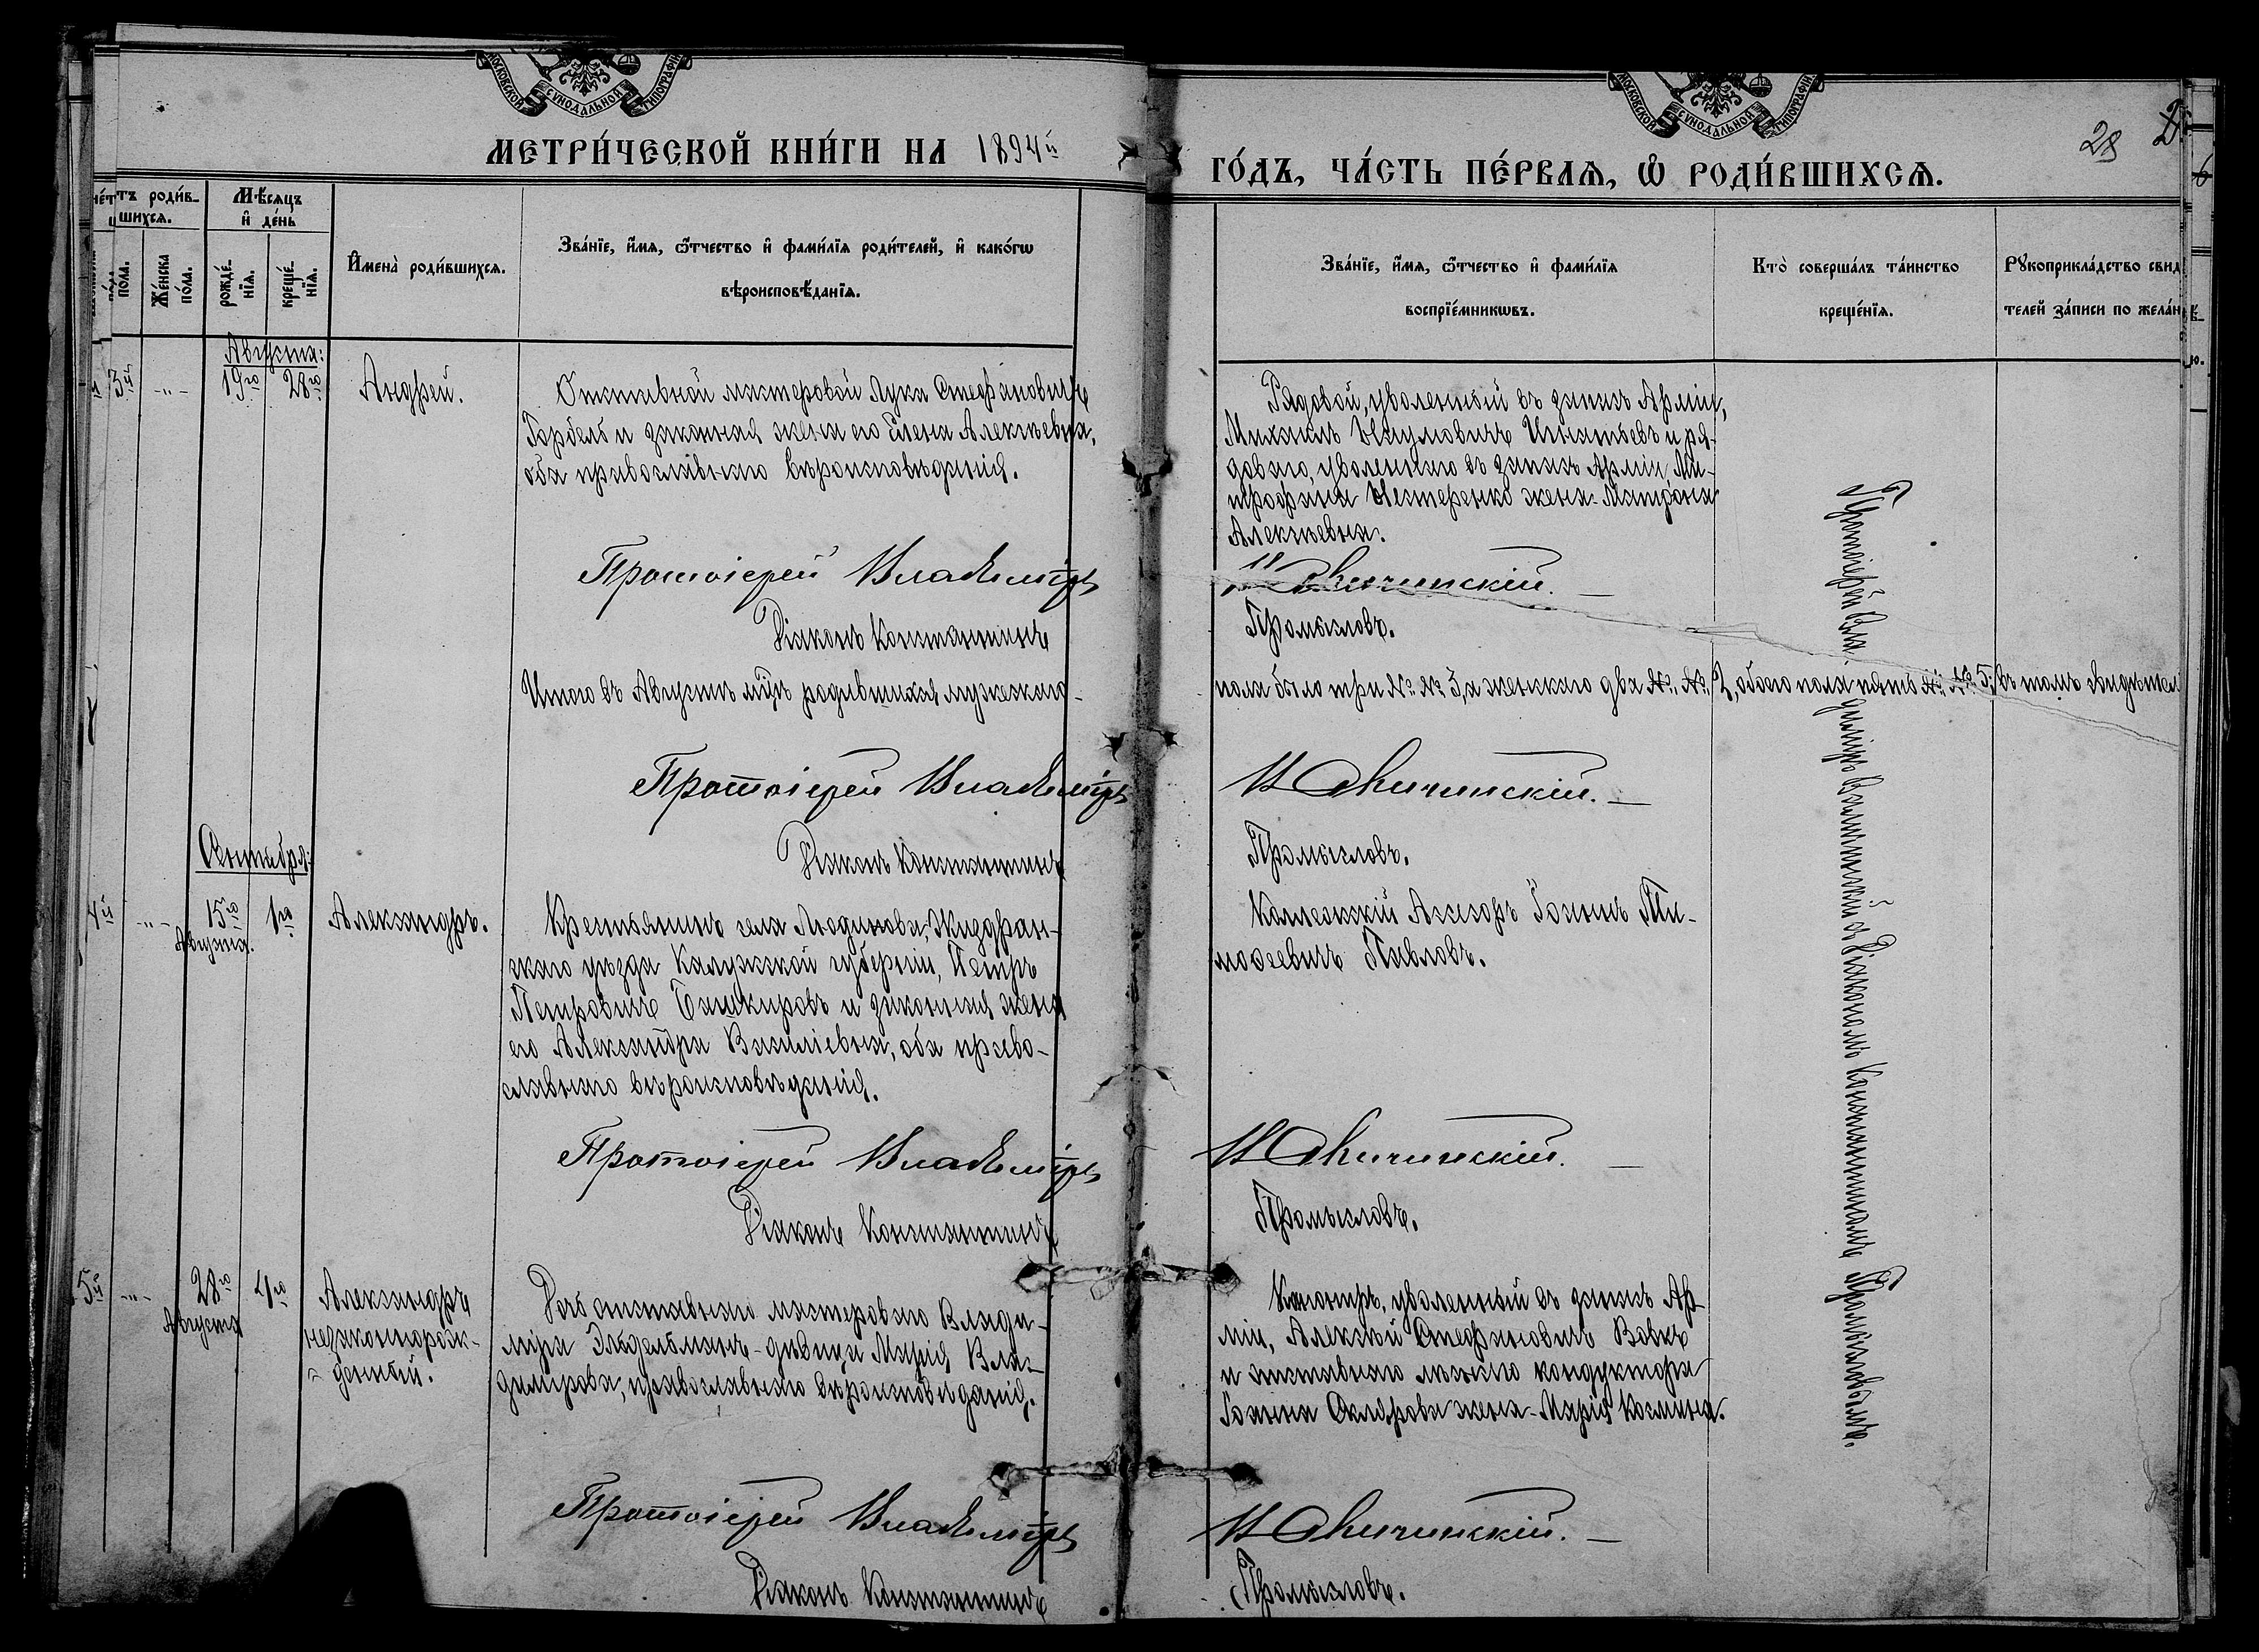 МОСКОВСКОЙ СУНОДАЛЬНОЙ ТИПОГРАФІИ
МОСКОВСКОЙ СУНОДАЛЬНОЙ ТИПОГРАФІИ
28
МЕТРИ́ЧЕСКОЙ КНИ́ГИ НА 1894й
ГО́ДЪ, ЧА́СТЬ ПЕ́РВАЯ, Ѡ҆ РОДИ́ВШИХСЯ.
тъ роди́в-
шихся.
Мѣ́сяцъ
и҆ де́нь
пола.
Же́нска
по́ла.
рожде́-
нїя.
креще́-
нїя.
И҆мена̀ роди́вшихся.
Зва́нїе, и҆́мя, ѻ҆́тчество и҆ фами́лїя роди́телей, и҆ како́гѡ
вѣроисповѣ́данїя.
Зва́нїе, и҆́мя, ѻ҆́тчество и҆ фами́лїя
воспрїе́мникѡвъ.
Кто̀ соверша́лъ та́инство
креще́нїя.
Рꙋкоприкла́дство свид
телей за́писи по жела́н
Августа:
3й
-„-
19го
28го
Андрей.
Отставной мастеровой Лука Стефановичъ
Горбель и законная жена его Елена Алексѣевна,
оба православнаго вѣроисповѣданія.
Рядовой, уволенный въ запасъ Арміи,
Михаилъ Наумовичъ Игнатьевъ и ря-
доваго, уволеннаго въ запасъ Арміи, Ми-
трофана Нестеренко жена-Матрона
Алексѣевна.
Протоіерей Владиміръ
Діаконъ Константинъ
Промысловъ.
Итого въ Августѣ мѣцѣ родившихся мужескаго-
пола было три №. № 3, а женскаго два №. №. 2, обоего пола пять №. №. 5; въ томъ свидѣтел
Протоіерей Владиміръ
Діаконъ Константинъ
Промысловъ.
Сентября:
4й
-„-
15го
Августа.
1го
Александръ.
Крестьянинъ села Людинова, Жиздрин-
скаго уѣзда Калужской губерніи, Петръ
Петровичъ Башкировъ и законная жена
его Александра Василіевна, оба право-
славнаго вѣроисповѣданія.
Коллежскій Асессоръ Іоаннъ Ти-
моѳеевичъ Павловъ.
Протоіерей Владиміръ
Діаконъ Константинъ
Промысловъ.
5й
-„-
28го
Августа
4го
Александръ
незаконнорож-
денный.
Дочь отставнаго мастероваго Влади-
міра Эйдельманъ-дѣвица Марія Вла-
димирова, православнаго вѣроисповѣданія.
Канониръ, уволенный въ запасъ Ар-
міи, Алексѣй Стефановичъ Вовкъ
и отставнаго кондуктора
Іоанна Склярова жена-Марія Космина.
Протоіерей Владиміръ
Діаконъ Константинъ
Промысловъ.
Протоіерей Владиміръ съ Діакономъ Константиномъ Промысловымъ.